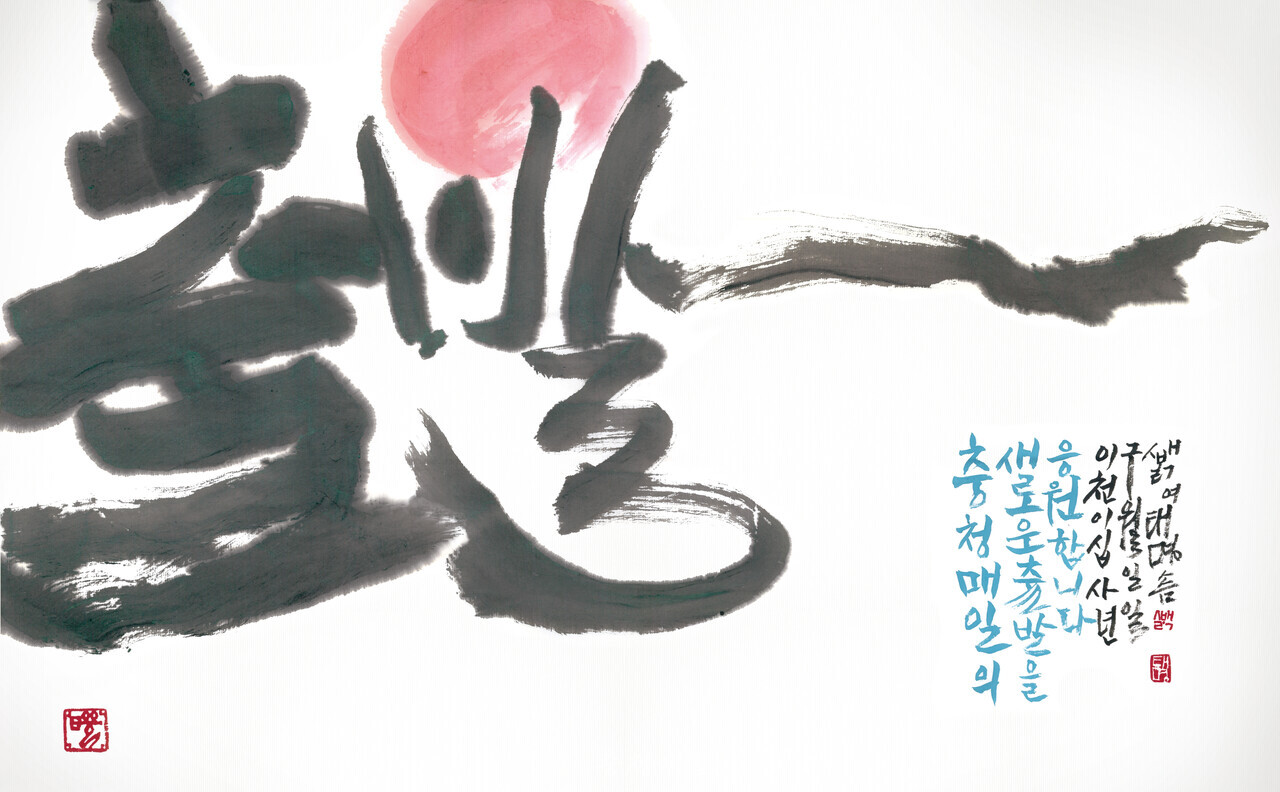 출발
충청매일의
새로운출발을
응원합니다
이천이십사년
구월일일